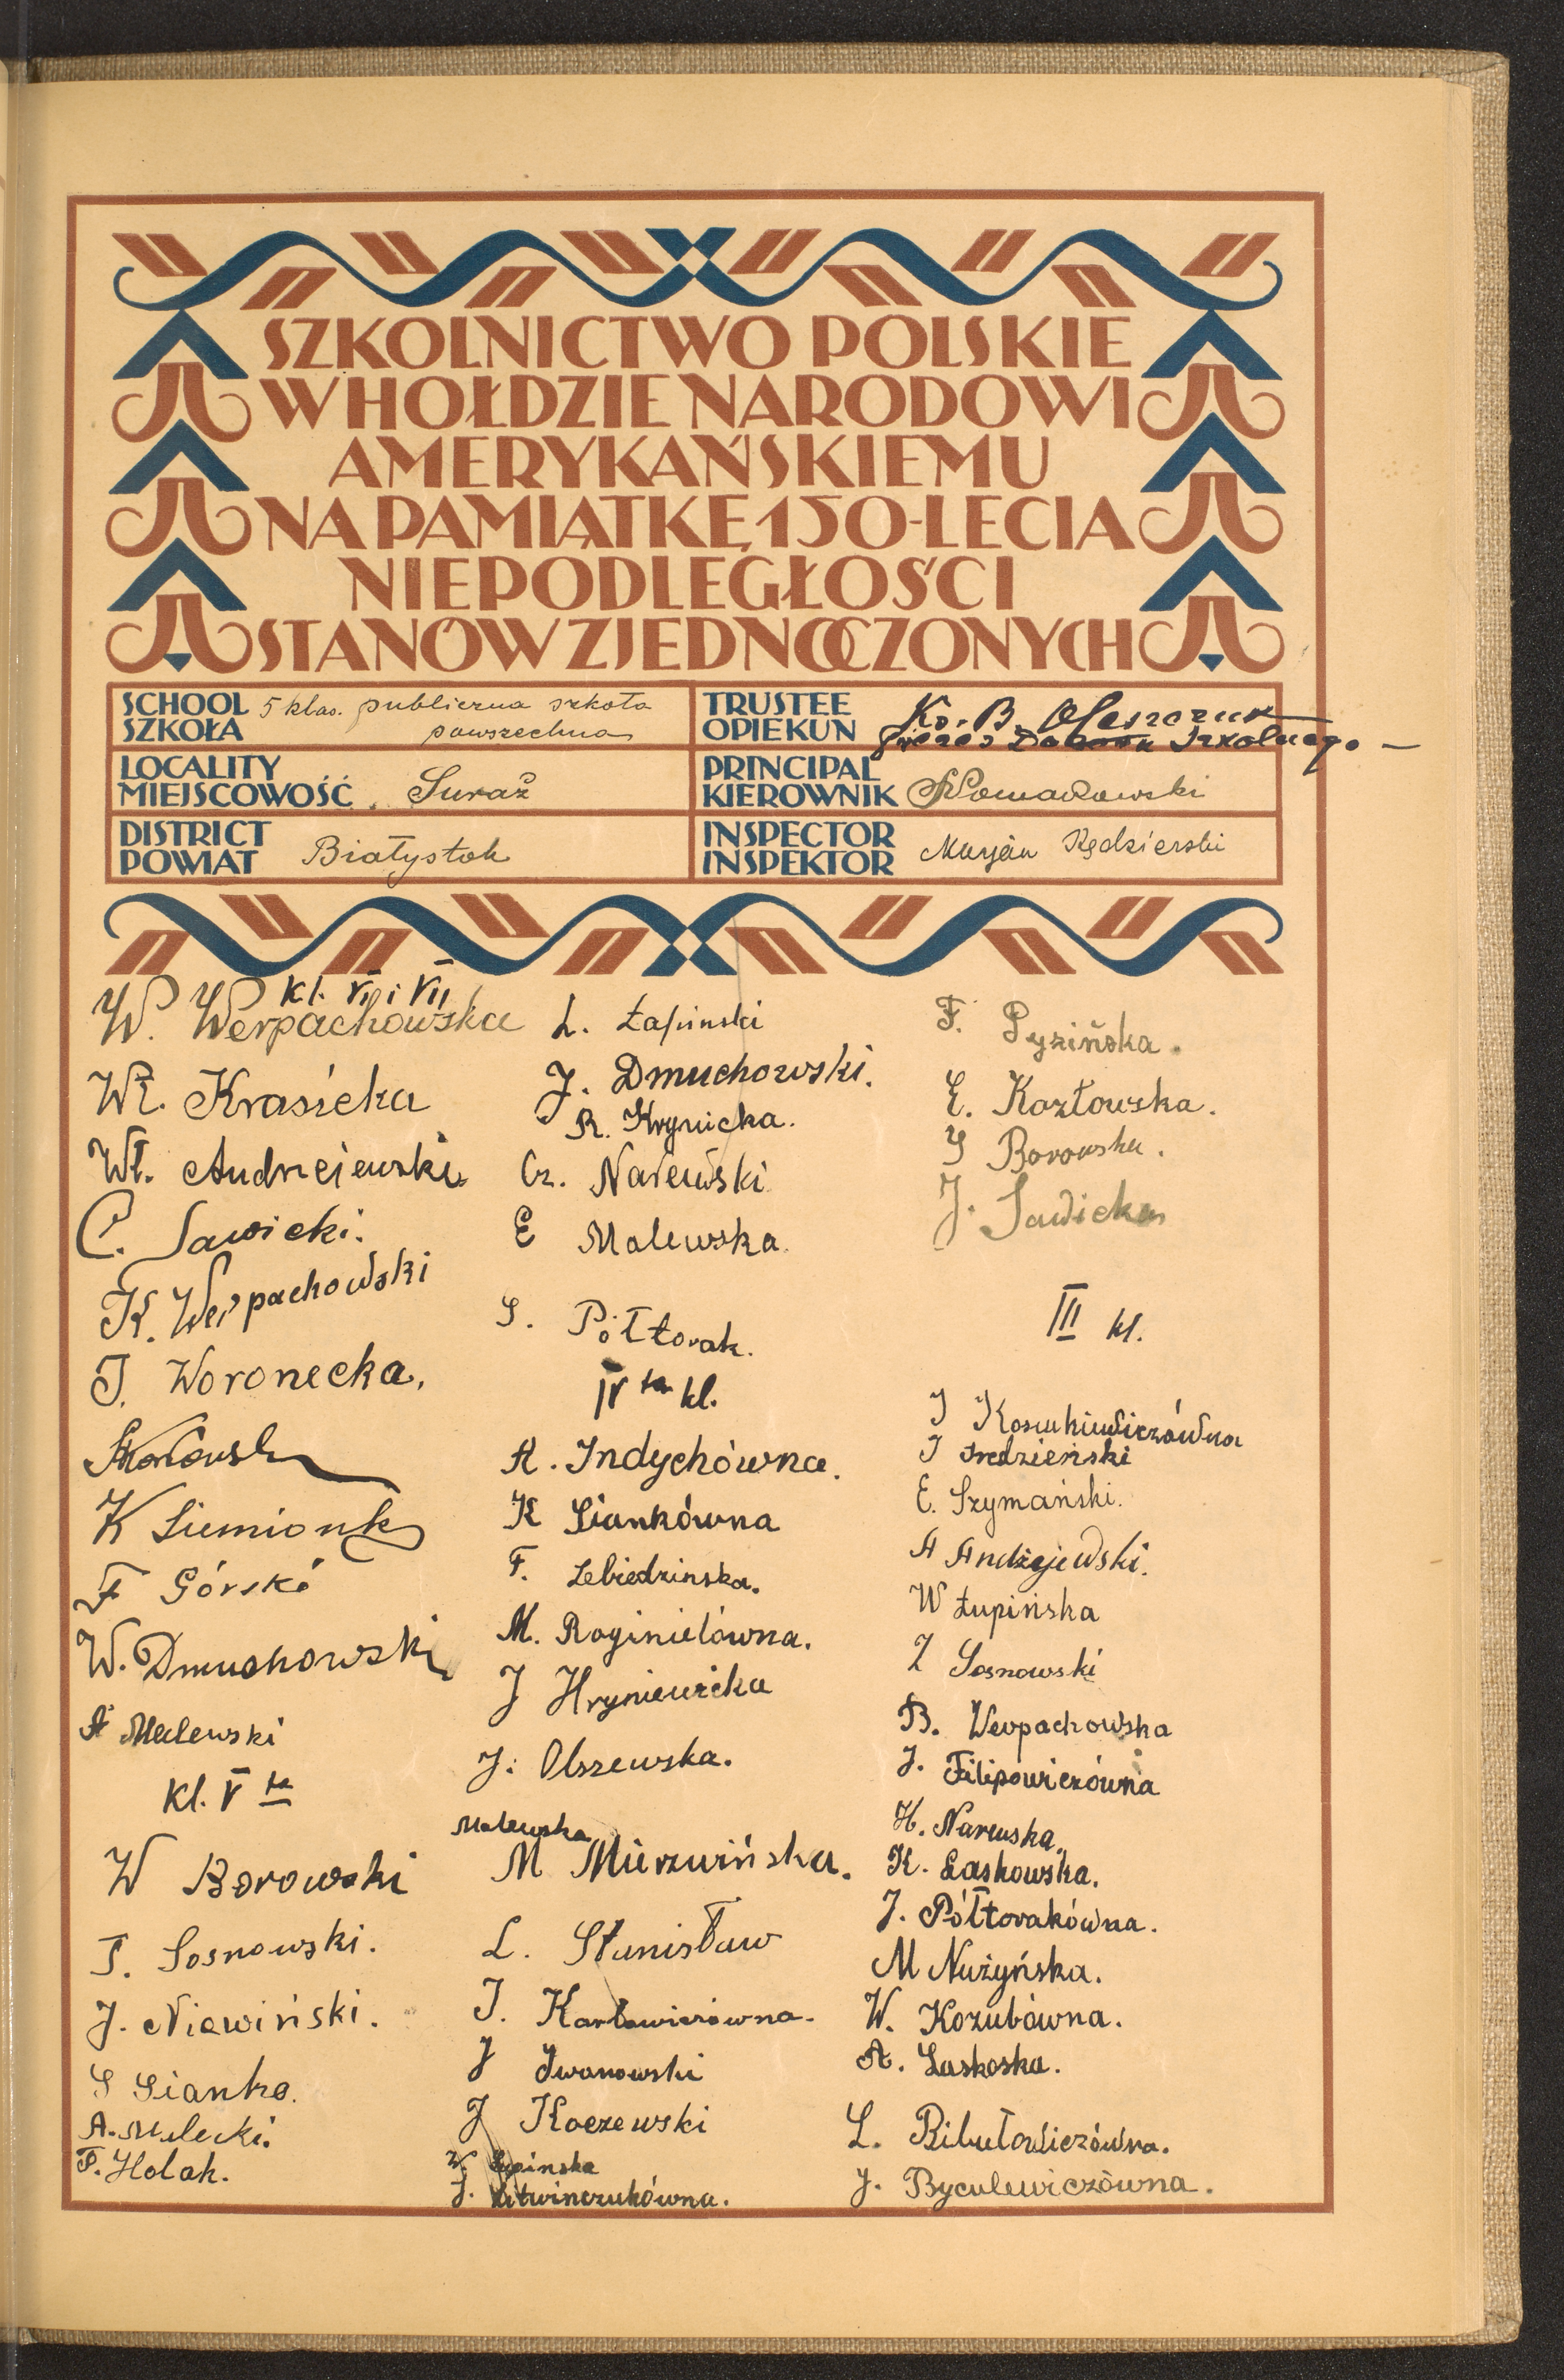 SZKOLNICTWO POLSKIE
W HOŁDZIE NARODOWI
AMERYKAŃSKIEMU
NA PAMIĄTKĘ 150-LECIA
NIEPODLEGŁOŚCI
STANÓW ZJEDNOCZONYCH
SCHOOL
SZKOŁA
5 klas. publiczna szkoła
powszechna
TRUSTEE
OPIEKUN
Ks. B. Oleszczuk
Prezes Dozoru Szkolnego
LOCALITY
MIEJSCOWOŚĆ
Suraż
PRINCIPAL
KIEROWNIK
DISTRICT
POWIAT
Białystok
INSPECTOR
INSPEKTOR
Marjan Kędzierski
kl. VI i VII
W. Werpachowska
Wł. Krasicka
Wł. Andrzejewski
C. Sawicki.
K. Werpachowski
J. Woronecka.
K Siemionk
F Górski
W. Dmuchowski
A Malewski
kl. V ta
W Borowski
T. Sosnowski.
J. Niewiński.
S Sianko.
A. Malecki.
F. Holak.
L. Łapinski
J. Dmuchowski.
R. Hrynicka.
Cz. Narewski
E Malewska.
S. Półtorak.
IV ta kl.
A. Indychówna.
K Siankówna
F. Lebiedzinska.
M. Roginielówna.
J Hryniewicka
J. Olszewska.
Malewska
M Mierzwińska.
L. Stanisław
J. Karłowiczówna.
J Iwanowski
J Koczewski
W. Łupinska
J. Litwinczukówna.
F. Pyzińska.
E. Kozłowska.
J Borowska.
J. Sawicka
III kl.
J Kosiukiewiczówna
J Średzieński
E. Szymański.
A Andżejewski.
W Łupińska
Z Sosnowski
B. Werpachowska
J. Filipowiczówna
H. Narewska.
K. Laskowska.
J. Półtorakówna.
M Nużyńska.
W. Kozubówna.
A. Laskoska.
L. Bibułowiczówna.
J. Byculewiczówna.